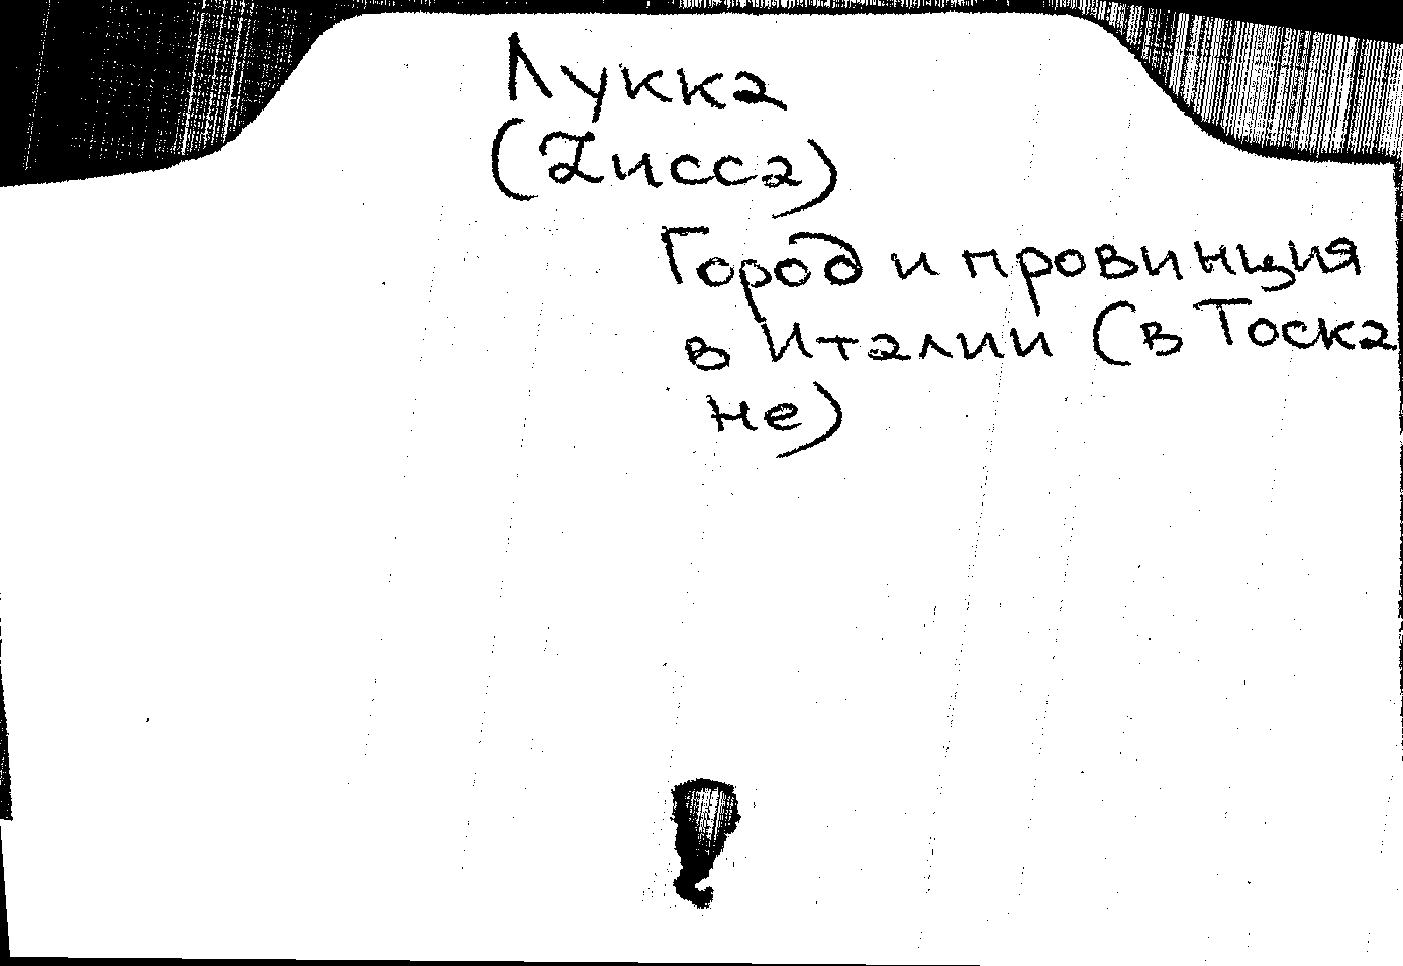 Лукка
(Lucca)
Город и провинция
в Италии (в Тоска
не)